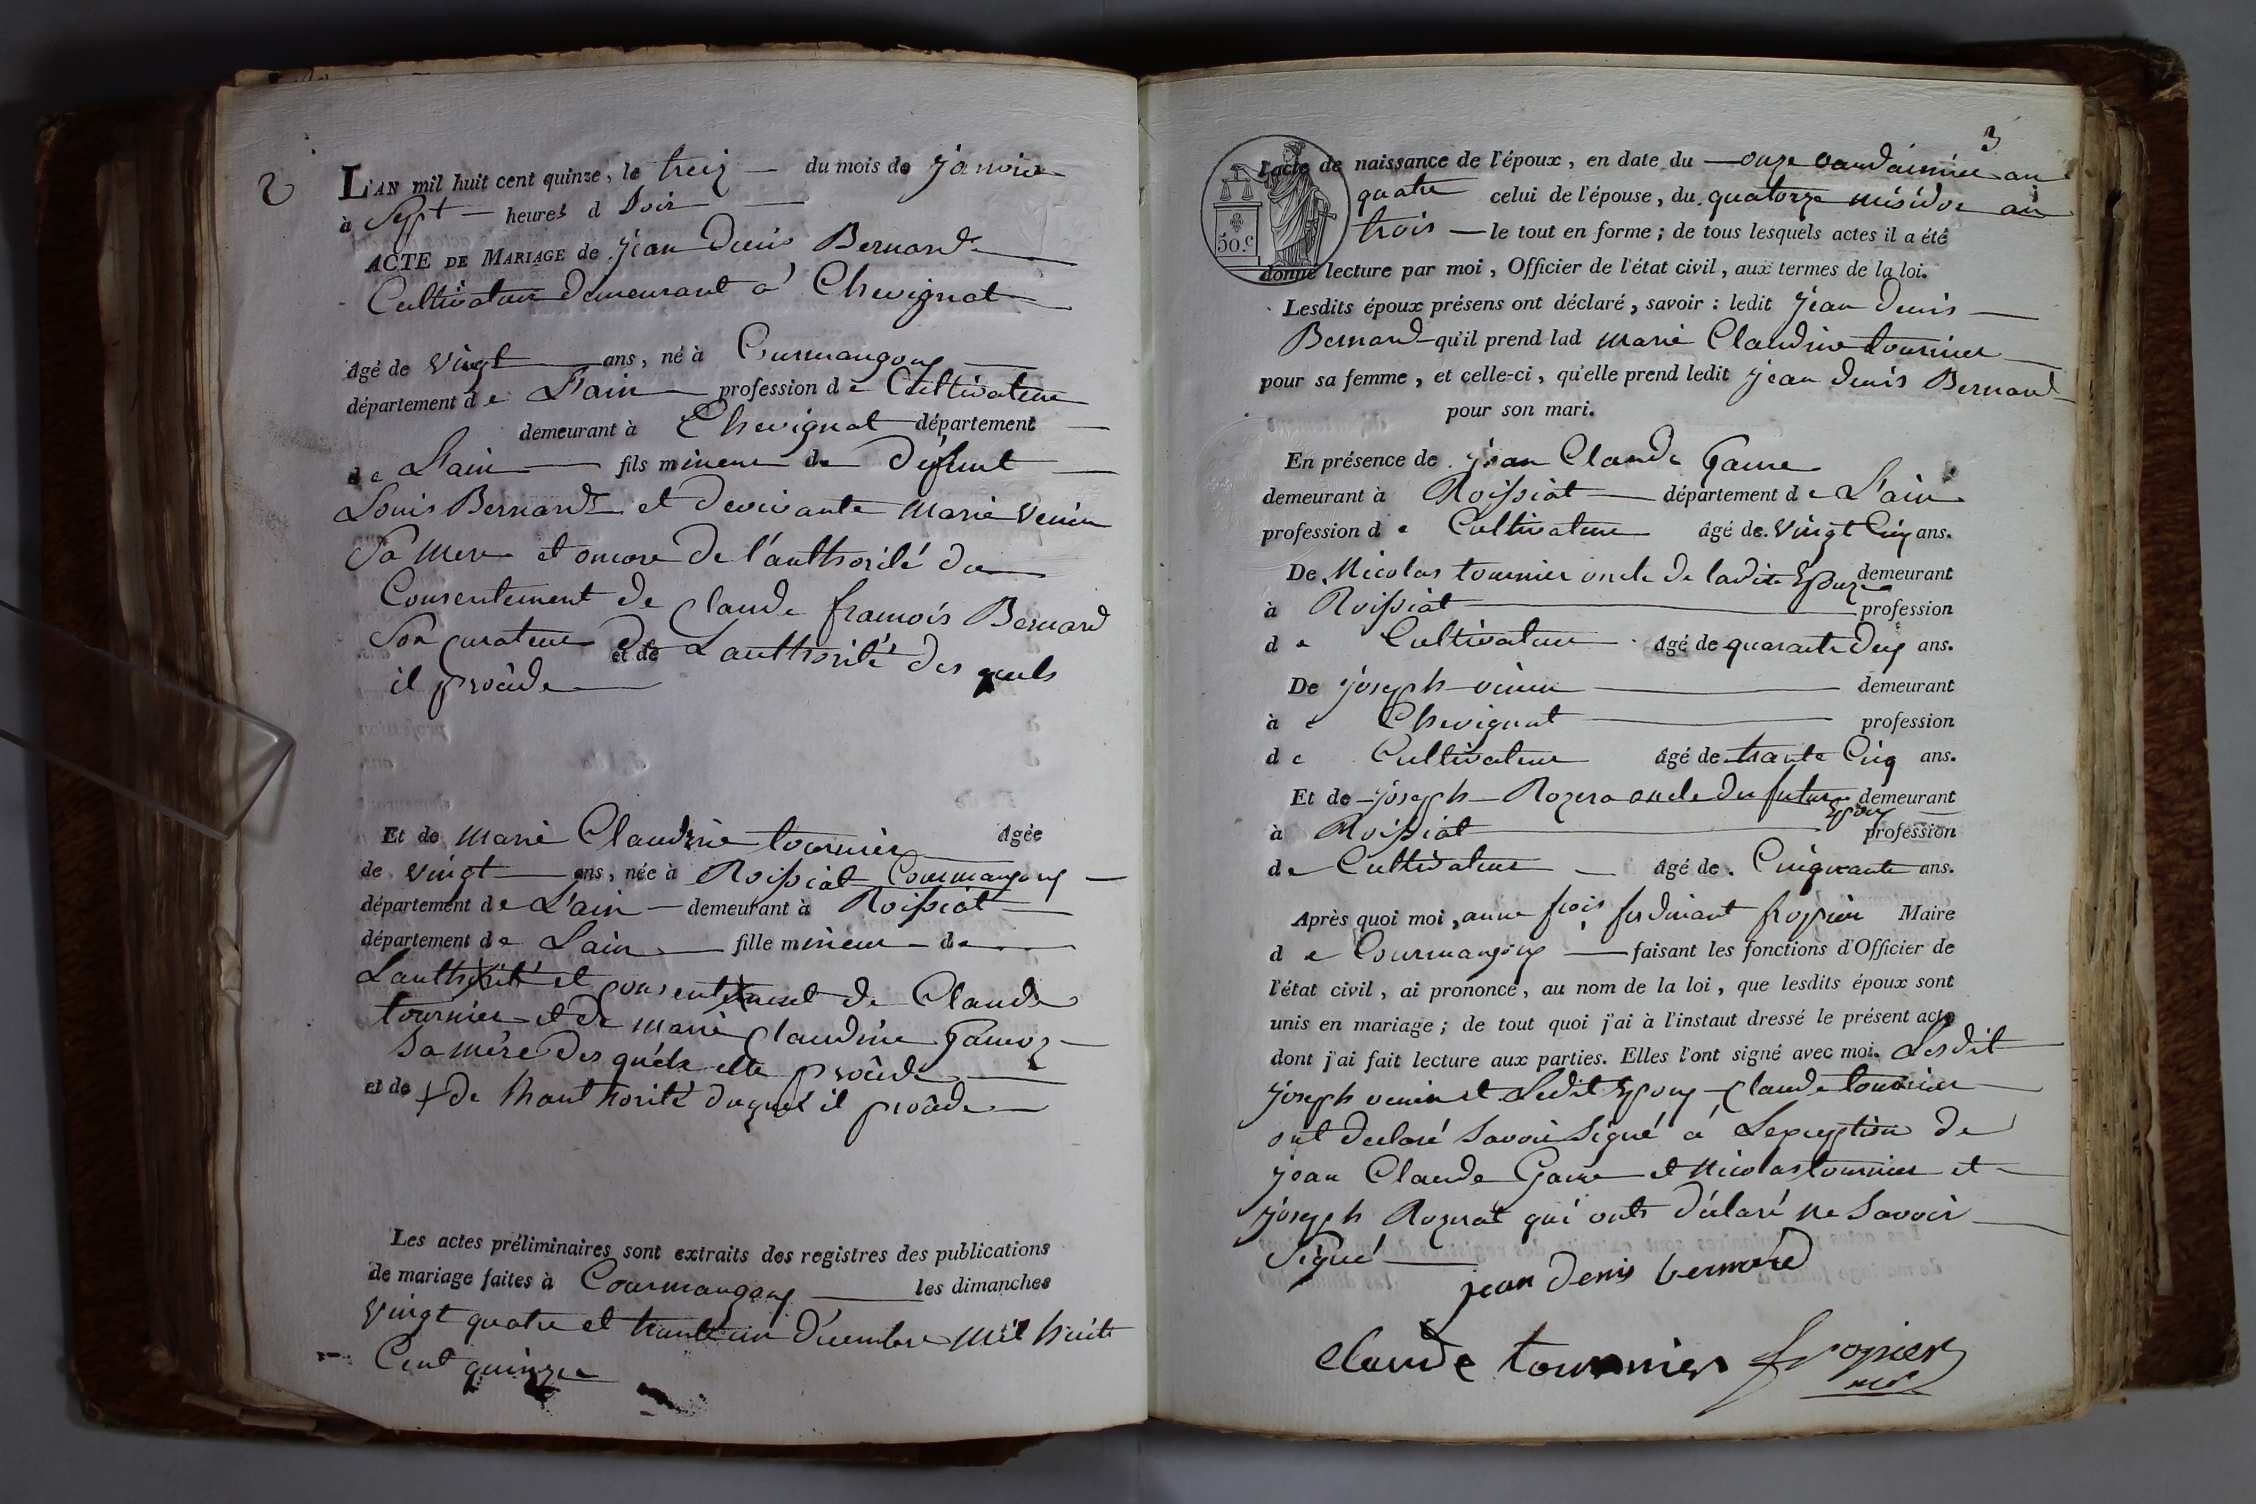 2
L'AN mil huit cent quinze, le treiz du mois de janvier
à Sept heures d Soir
ACTE DE MARIAGE de jean Denis Bernard
Cultivateur demeurant a Chevignat
âgé de vingt ans, né à Courmangoux
département de L'ain profession de Cultivateur
demeurant à Chevignat département
de L'ain fils mineur de Défunt
Louis Bernard et de vivante Marie venin
Sa Mere et encore de l'authorité du
Consentement de Claude francois Bernard
Son curateur De L'authorité des quels
et de
il procède
Et de Marie Claudine tournier âgée
de vingt ans, née à Roissiat Courmangoux
département de L'ain demeurant à Roissiat
département de Lain fille mineur de
Lauthorité et consentement de Claude
tournier et de marie Claudine
Sa mére des quels elle procède
et de + de Lauthorité duquel il procède
Les actes préliminaires sont extraits des registres des publications
de mariage faites à Courmangoux les dimanches
vingt quatre et trante un Décembre mil huit
Cent quinze
3
l'acte de naissance de l'époux, en date du onze vandaimier an
quatre celui de l'épouse, du quatorze mésidor an
trois le tout en forme; de tous lesquels actes il a été
50.c
donné lecture par moi, Officier de l'état civil, aux termes de la loi.
Lesdits époux présens ont déclaré, savoir : ledit jean Denis
Bernard qu'il prend lad marie Claudine tournier
pour sa femme, et celle-ci, qu'elle prend ledit jean denis Bernard
pour son mari.
En présence de jean Claude
demeurant à Roissiat département de L'ain
profession de Cultivateur âgé de vingt Cinq ans.
De Nicolas tournier oncle de ladite Epouze demeurant
à Roissiat profession
de Cultivateur âgé de quarante Deux ans.
De joseph venin demeurant
à Chevignat profession
de Cultivateur âgé de trante Cinq ans.
Et de joseph Rozera oncle du futur Epoux demeurant
à Roissiat profession
de Cultivateur âgé de Cinquante ans.
Après quoi moi, anne fcois ferdinant frossier Maire
de Courmangoux faisant les fonctions d'Officier de
l'état civil, ai prononcé, au nom de la loi, que lesdits époux sont
unis en mariage; de tout quoi j'ai à l'instant dressé le présent acte
dont j'ai fait lecture aux parties. Elles l'ont signé avec moi. Lesdit
joseph venin et Ledit Epoux Claude tournier
ont declaré Savoir Signé a Lexception de
jean Claude et Nicolas tournier et
joseph Rozerat qui onts Déclaré ne Savoir
Signé
jean denis bernard
claude tournier